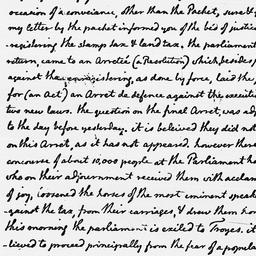 occasion of a conveiance, other than the Packet, sure &
my letter by the packet informed you of the bed of justice
-registering the stamp tax & land tax, the parliament
return, came to an Arreté (a Resolution) which besides
against the enregistering, as done by force, laid the
for (an Act) an Arret de defence against the executi
two new laws. the question on the final Arret, was ad
to the day before yesterday. it is beleived they did not
on this Arret, as it has not appeared. however there
concourse of about 10,000 people at the Parliament ho
who on their adjournment received them with acclam
of joy, loosened the horses of the most eminent speak
against the tax, from their carriages, & drew them hom
this morning the parliament is exiled to Troyes. it
-lieved to proceed principally from the fear of a popula